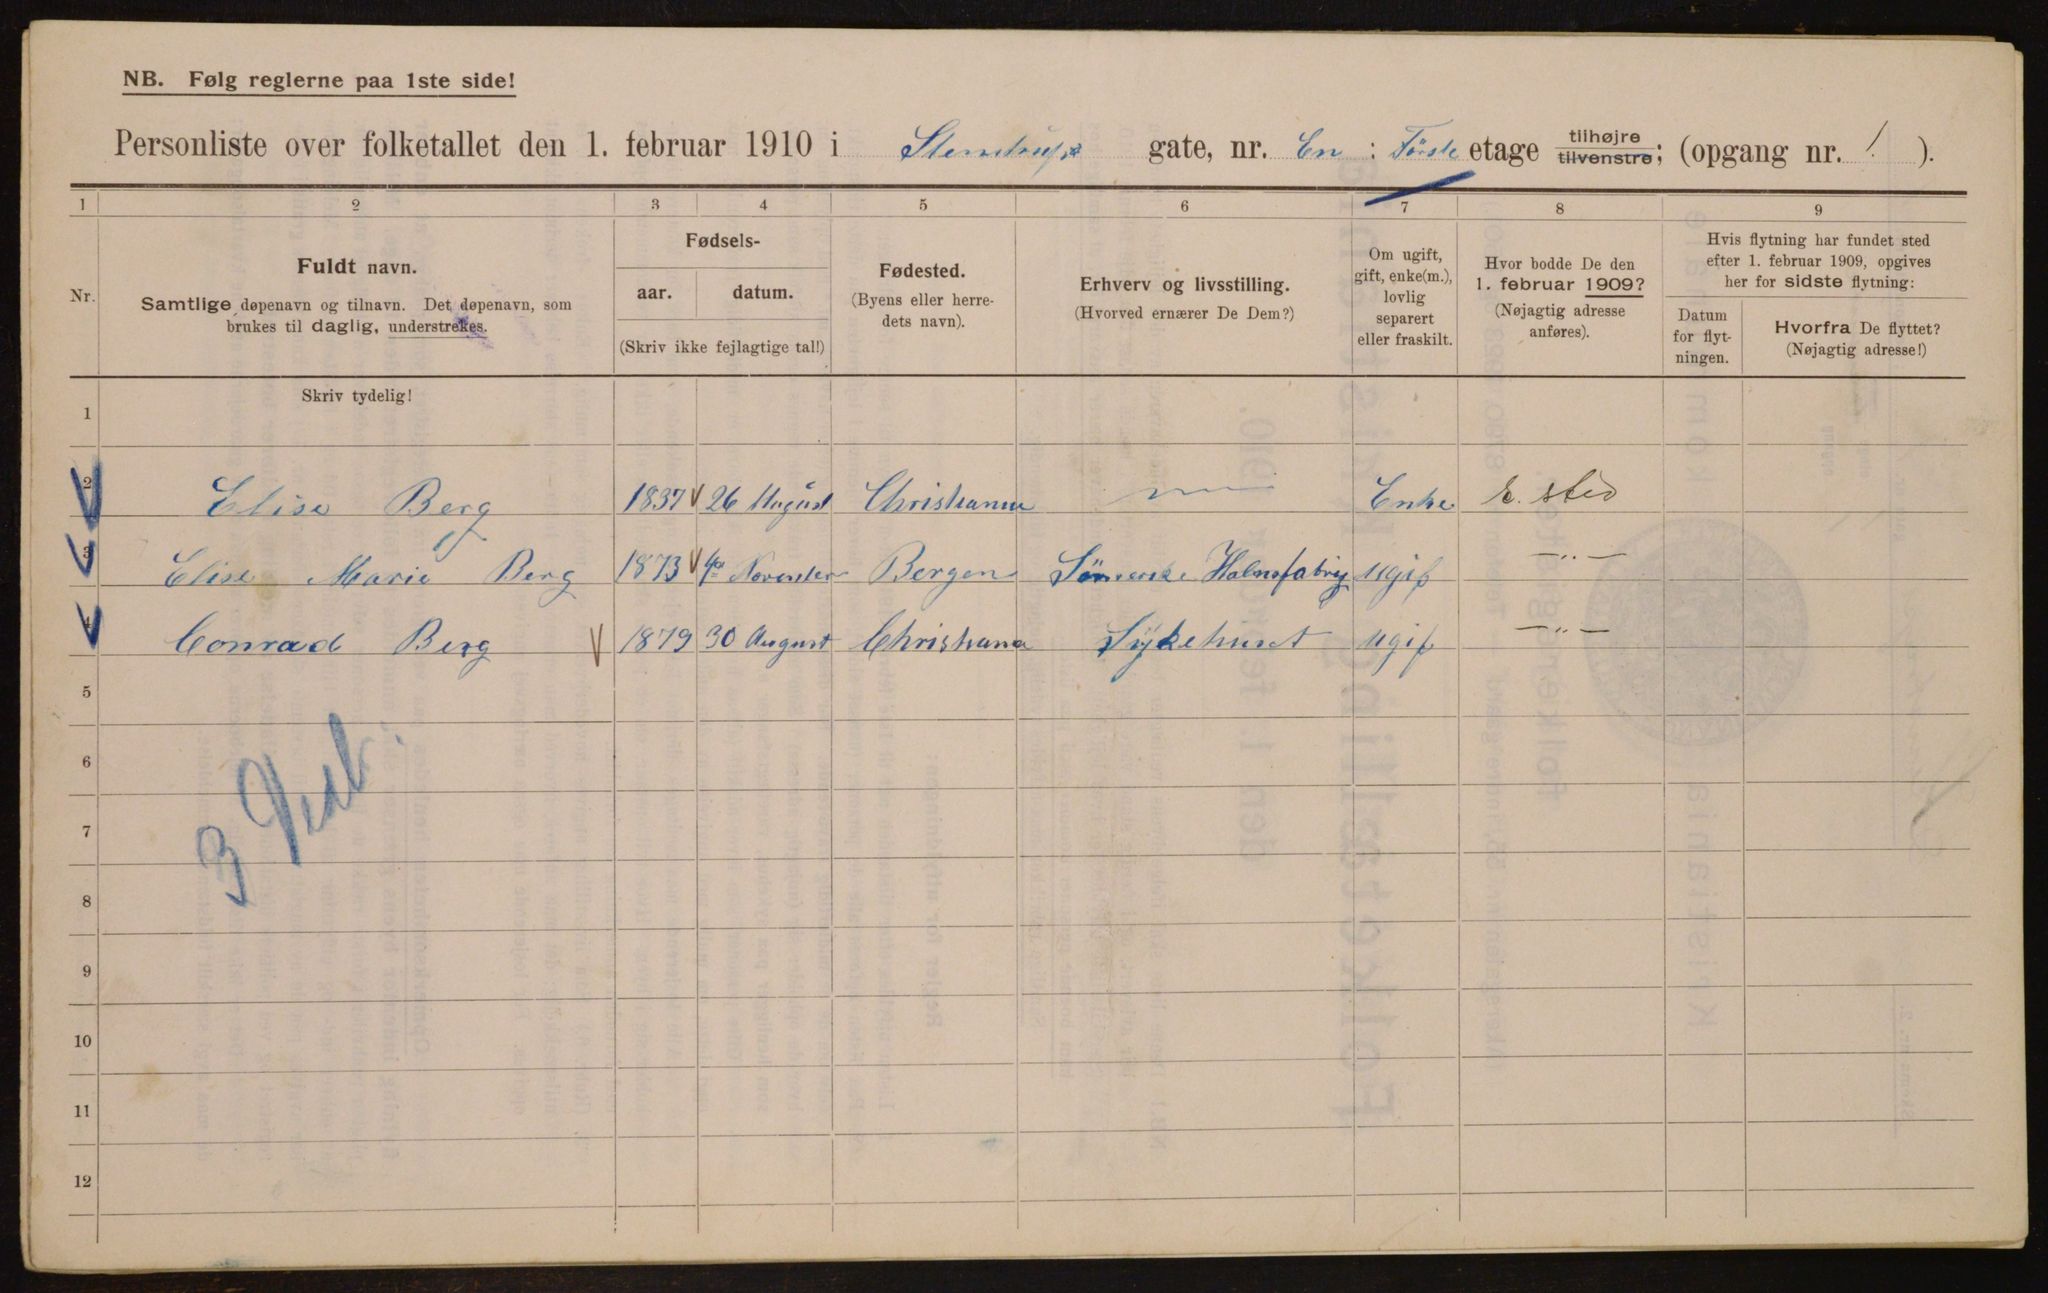 NB. Følg reglerne paa 1ste side!
Personliste over folketallet den 1. februar 1910 i Stenstrups gate, nr. En : Første etage tilhøjre tilvenstre; (opgang nr. 1. ).
1 2 3 4 5 6 7 8 9
Nr.
Fuldt navn.
Samtlige døpenavn og tilnavn. Det døpenavn, som
brukes til daglig, understrekes.
Fødsels-
aar. datum.
(Skriv ikke fejlagtige tal!)
Fødested.
(Byens eller herre-
dets navn).
Erhverv og livsstilling.
(Hvorved ernærer De Dem?)
Om ugift,
gift, enke(m.),
lovlig
separert
eller fraskilt.
Hvor bodde De den
1. februar 1909?
(Nøjagtig adresse
anføres).
Hvis flytning har fundet sted
efter 1. februar 1909, opgives
her for sidste flytning:
Datum
for flyt-
ningen.
Hvorfra De flyttet?
(Nøjagtig adresse!)
Skriv tydelig!
1
2 Elise Berg 1837 26 August Christiania Enke s. sted
3 Elise Marie Berg 1873 November Bergen Halmfabrig ugif —„—
4 Conrad Berg 1879 30 August Christiana Sykehuset ugif —„—
5
6
7
8
9
10
11
12
3